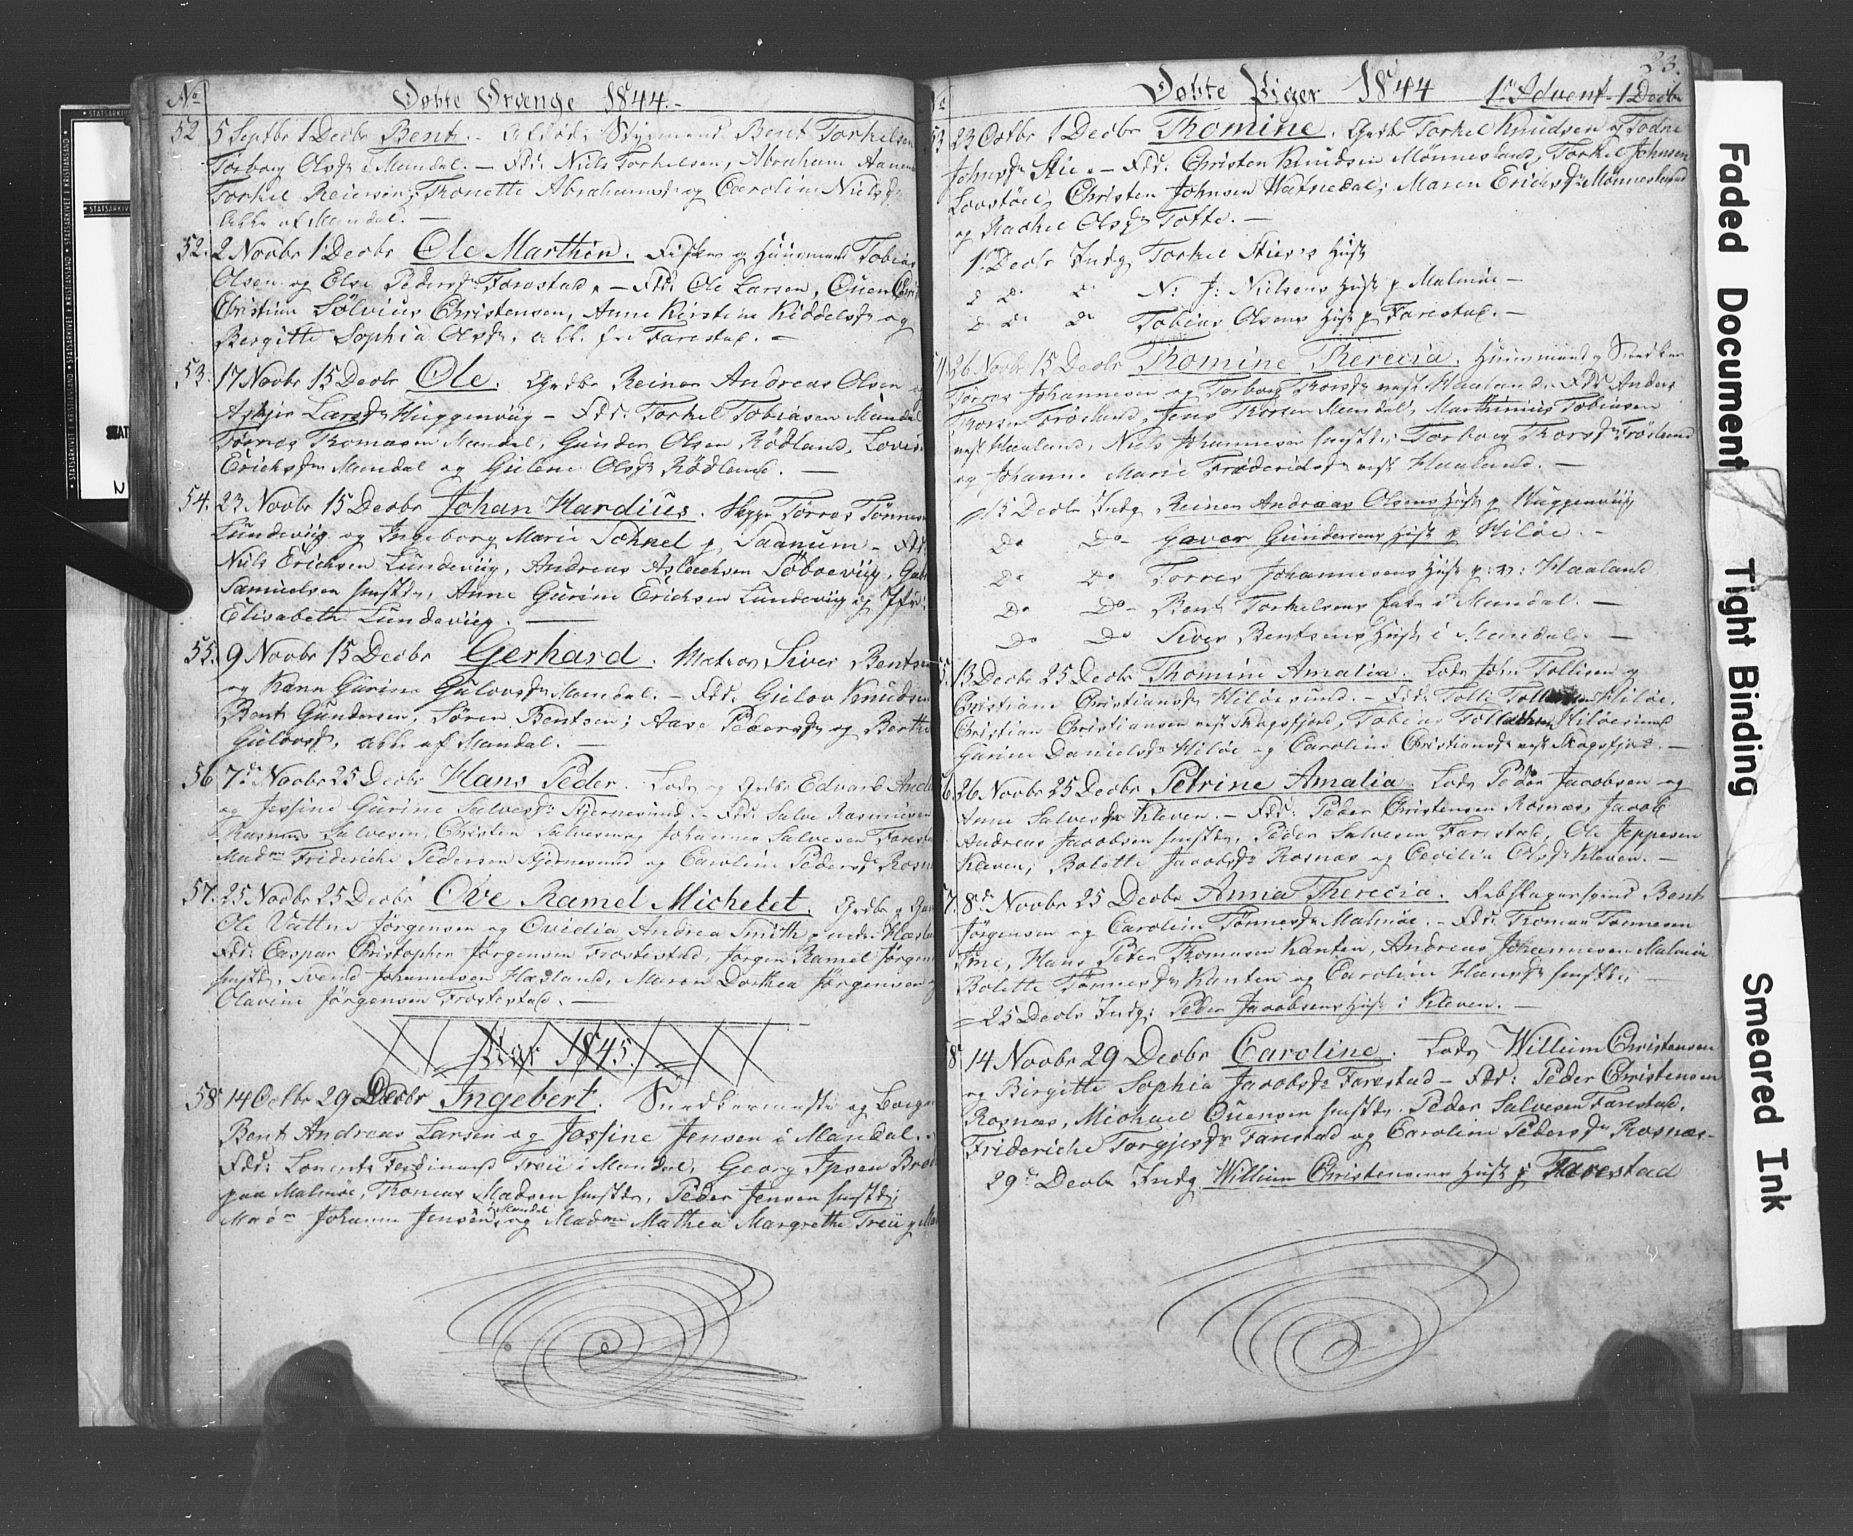 No
Døbte Drænge 1844.-
52 5 Septbr 1 Decbr Bent. - Afdød. Styrmand Bent Torkelsen
Torborg Olsdr i Mandal. - Fdr: Niels Torkelsen, Abraham Aanens
Torkel Reiersen; Thonette Abrahamsdr og Carolin Nielsdr
alle af Mandal. -
52. 2 Novbr 1 Decbr Ole Marthin. Fisker og Huusmand Tobias
Olsen og Else Pedersdr Farestad. - Fdr: Ole Larsen, Ouen
Christian Sølvius Christensen, Anne Kirstin Kiddelsdr og
Bergitte Sophia Olsdr, alle fra Farestad. -
53. 17 Novbr 15 Decbr Ole. Grdbr Reiner Andreas Olsen
Asbjør Larsdr Huggenviig - Fdr: Torkel Tobiasen Mandal
Tønnes Thomasen Mandal, Gunder Olsen Rødland, Lovise
Erichsdr Mandal og Gulene Olsdr Rødland. -
54. 23 Novbr 15 Decbr Johan Hardius. Torres Tønnes
Lundeviig og Ingeborg Marie Tohnel p Saanum - Fdr:
Niels Erichsen Lundeviig, Andreas Aslachsen
Samuelsen sammestds, Anne Gurine Erichsen Lundeviig og Jfr:
Elisabeth Lundeviig. -
55. 9 Novbr 15 Decbr Gerhard. Matros Siver Bentsen
og Karen Gurine Gulovsdr Mandal. - Fdr: Gulov Knudsen
Bent Gundersen, Søren Bentsen; Aase Pedersdr og Berthe
Gulovsdr, alle af Mandal. -
56 7de Novbr 25 Decbr Hans Peder. Lods og Grdbr Edvard
og Jessine Gurine Salvesdr Kjernesund. - Fdr: Salve Rasmusen
Rasmus Salvesen, Christen Salvesen og Johannes Salvesen Farestad
Madme Frideriche Pedersen Kjernesund og Carolin Pedersdr Rosnæs
57. 25 Novbr 25 Decbr Ove Ramel Michelet. Grdbr
Ole Vattne Jørgensen og Ovidia Andrea Smith
Fdr: Caspar Christopher Jørgensen Frostestad, Jørgen Ramel Jørgens
sammestds, Svend Johannesen Hadland, Maren Dorthea Jørgensen
Olavine Jørgensen Frostestad. -
Aar 1845.
58 14 Octbr 29 Decbr Ingebert. Snedkermester og Borger
Bent Andreas Larsen og Jossine Jensen i Mandal.
Fdr: Lorentz Ferdinand Treu i Mandal, Georg Ipsen
paa Malmøe, Thomas Madsen sammestds, Peder Jensen sammestds;
Madme Johanne Jensen i Mandal og Madme Mathea Margrethe Treu
23.
Døbte Piger 1844 1ste Advent - 1 Decbr
53 23 Octbr 1 Decbr Thomine. Grdbr Torkel Knudsen og Todne
Johnsdr Stie. - Fdr: Christen Knudsen Mønnesland, Torkel Johnsen
Lovstøel, Christen Johnsen Hainedal; Maren Erichsdr Mønnesland
og Rachel Olsdr Tofte. -
1 Decbr Indg Torkel Stie's Hust
Do Do N: J: Nielsens Hust p Malmøe -
Do Do Tobias Olsens Hust p Farestad. -
54 26 Novbr 15 Decbr Thomine Therecia. Huusmand og Snedker
Torres Johannesen og Torborg Thorsdr vest Haaland. Fdr: Anders
Thorsen Frøsland, Jens Thorsen Mandal, Marthinius Tobiasen
vest Haaland, Niels Johannesen sammestds; Torborg Thorsdr Frøsland
og Johanne Marie Frederichsdr vest Haaland. -
15 Decbr Indg Reiner Andreas Olsens Hust p Huggenviig
Do Do Gaver Gundersens Hust p Hiløe. -
Do Do Torres Johannesens Hust p: v: Haaland
Do Do Bent Torkelsens Enke i Mandal. -
Do Do Siver Bentsens Hust i Mandal. -
55. 13 Decbr 25 Decbr Thomine Amalia. Lods John Tollisen og
Christiane Christiansdr Hiløesund. - Fdr: Tolli Hiløe.
Christian Christiansen vest Skogsfjord, Tobias Hiløesund
Gurine Danielsdr Hiløe og Caroline Christiansdr vest Skogsfjord. -
56 26 Novbr 25 Decbr Petrine Amalia. Lods Peder Jacobsen og
Anne Salvesdr Kleven. - Fdr: Peder Christensen Rosnæs, Jacob
Andreas Jacobsen sammestds, Peder Salvesen Farestad, Ole Jeppesen
Kleven; Bolette Jacobsdr Rosnæs og Cecilia Olsdr Kleven. -
57. 8de Novbr 25 Decbr Anna Therecia. Rebslagersvend Bent
Jørgensen og Carolin Tønnesdr Malmøe. - Fdr: Thomas Tønnesen
Ime, Hans Peter Thomasen Kanten, Andreas Johannesen Malmøe
Bolette Tønnesdr Kanten og Carolin Hansdr sammestds. -
25 Decbr Indg: Peder Jacobsens Hust i Kleven. -
58 14 Novbr 29 Decbr Caroline. Lods Willum Christensen
og Birgitte Sophia Jacobsdr Farestad - Fdr: Peder Christensen
Rosnæs, Michael Ouensen sammestds. Peder Salvesen Farestad,
Frideriche Torgjesdr Farestad og Carolin Pedersdr Rosnæs-
29de Decbr Indg Willum Christensens Hust p Farestad
Faded Document
Tight Binding
Smeared Ink